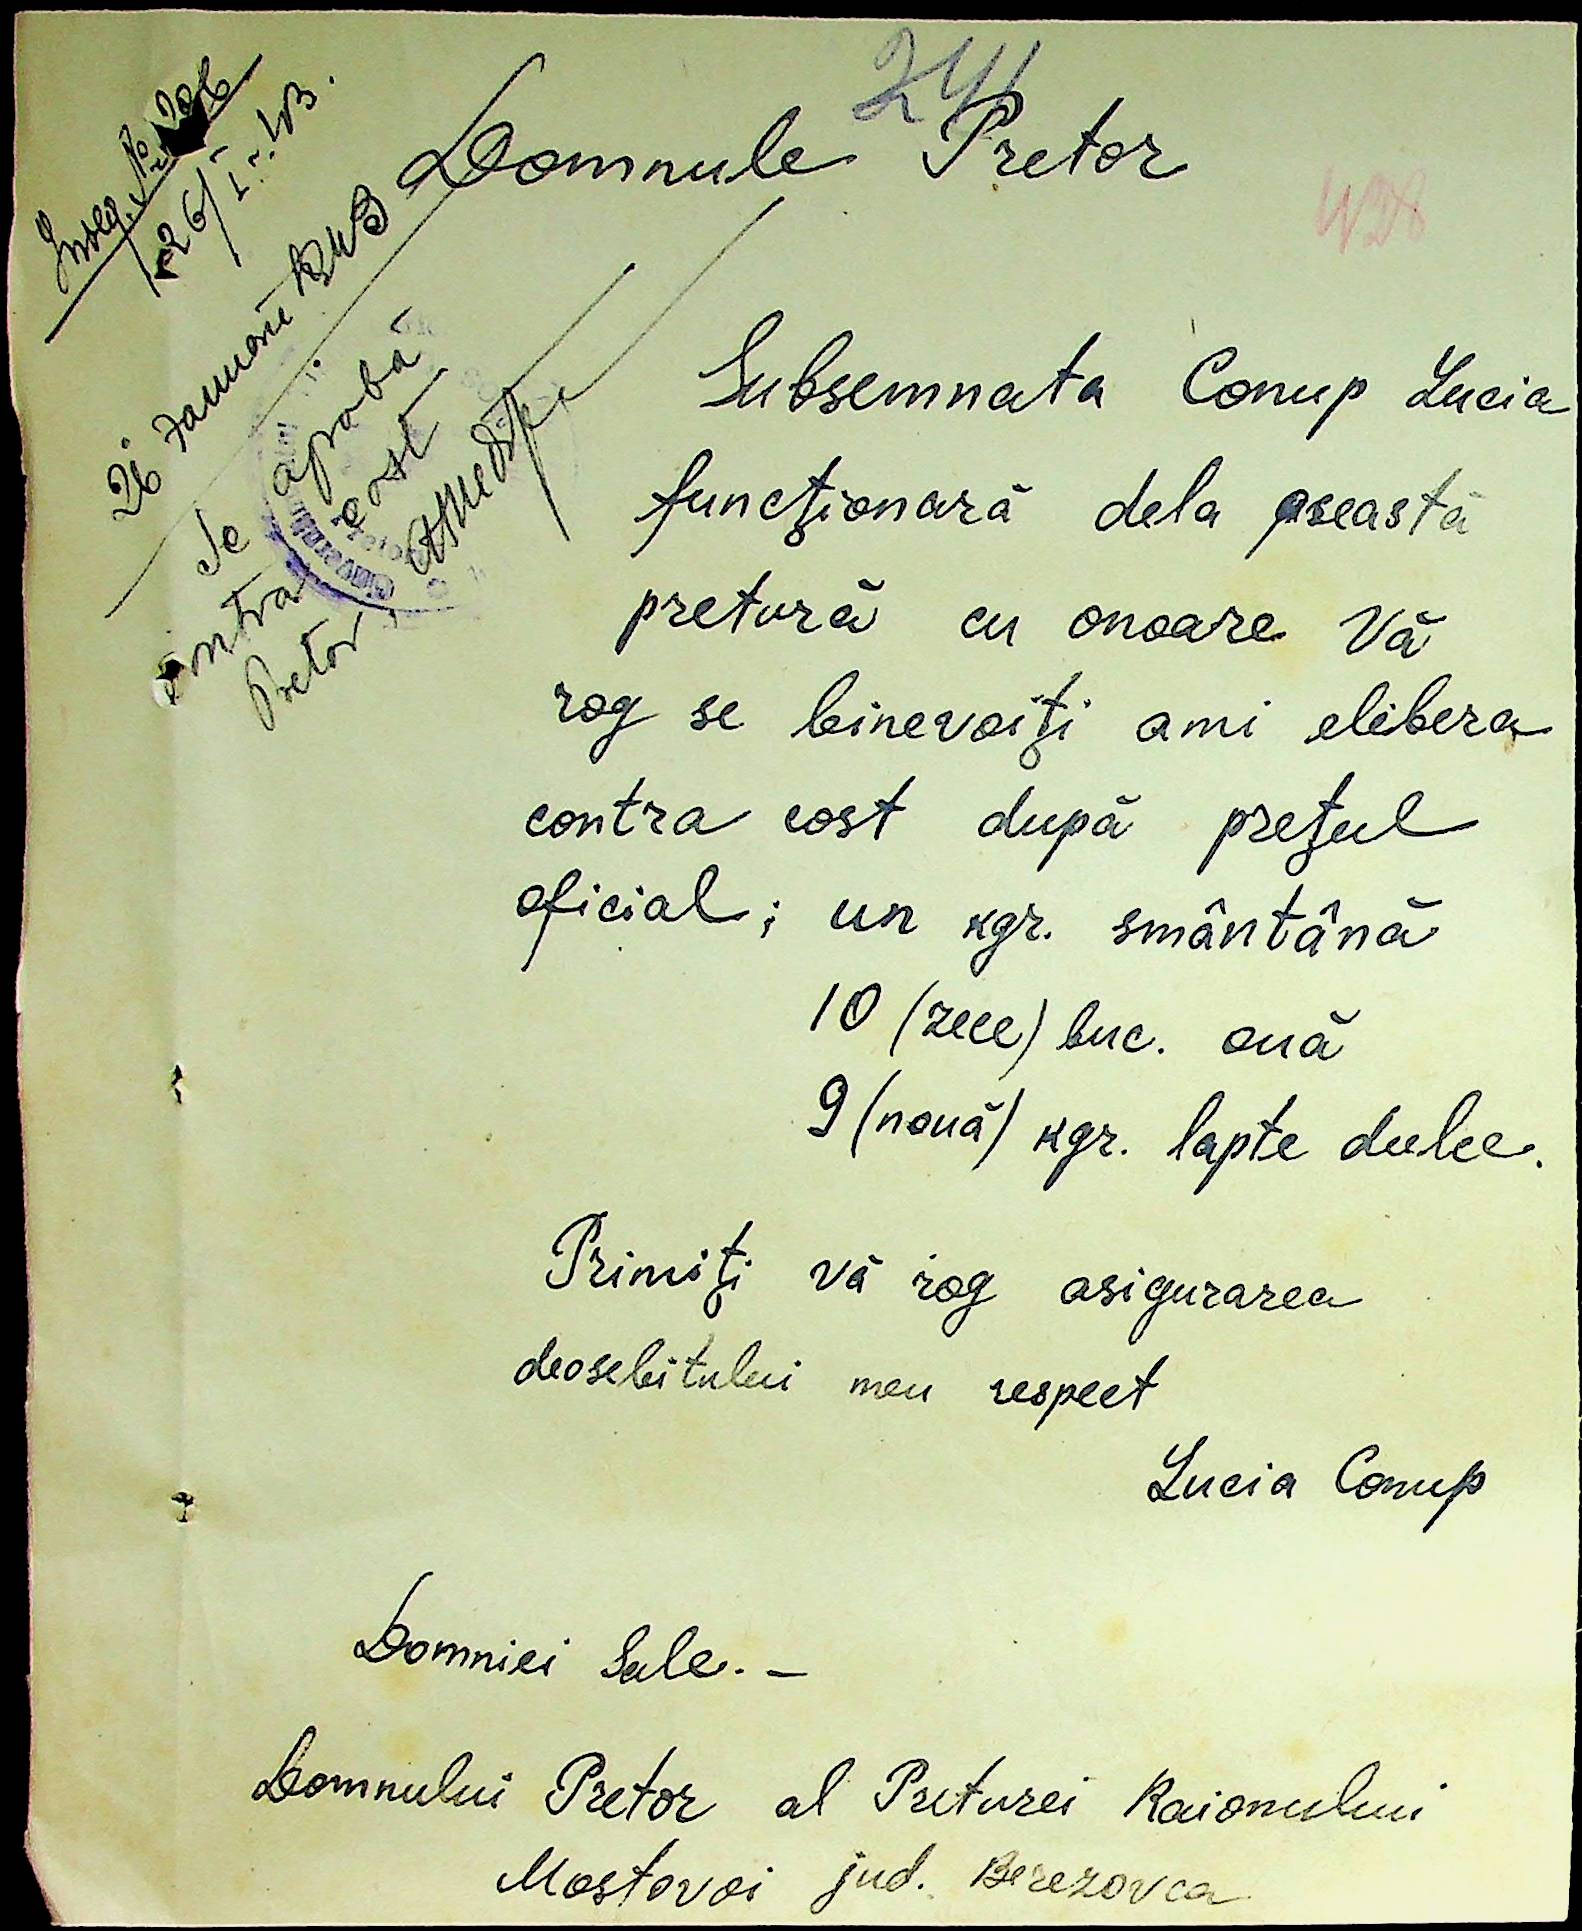 241
Domnule Pretor
428
Inreg. No
26/I
26 Januarie 1943
Se aprobă
contra cost
Pretor,
Subsemnata Conup Lucia
funcţionară dela aseastă
pretură cu onoare Vă
rog se binevoiţi ami elibera
contra cost după preţul
oficial; un kgr. smântână
10 (zece) buc. ouă
9 (nouă) kgr. lapte dulce.
Primiţi vă rog asigurarea
deosebitului meu respect
Lucia Conup
Domniei Sale. –
Domnului Pretor al Preturei Raionului
Mostovoi jud. Berezovca